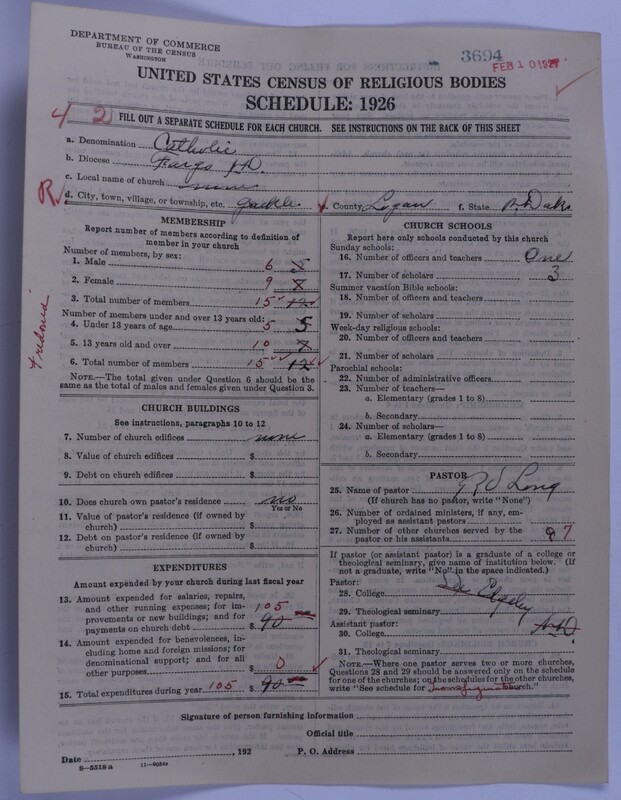 DEPARTMENT OF COMMERCE
BUREAU OF THE CENSUS
WASHINGTON
3694
FEB 10 1927
UNITED STATES CENSUS OF RELIGIOUS BODIES
SCHEDULE: 1926
4 2 FILL OUT A SEPARATE SCHEDULE FOR EACH CHURCH. SEE INSTRUCTIONS ON THE BACK OF THIS SHEET
a. Denomination Catholic
b. Diocese Fargo N.D.
c. Local name of church none
R d. City, town, village, or township, etc. Gackle. e. County, Logan f. State N. Dak.
Fredonia
MEMBERSHIP
Report number of members according to definition of
member in your church
Number of members, by sex:
1. Male 6 5
2. Female 9
3. Total number of members 15 12
Number of members under and over 13 years old:
4. Under 13 years of age 5 5
5. 13 years old and over 10 7
6. Total number of members 15 12
NOTE.—The total given under Question 6 should be the
same as the total of males and females given under Question 3.
CHURCH BUILDINGS
See instructions, paragraphs 10 to 12
7. Number of church edifices none
8. Value of church edifices $
9. Debt on church edifices $
10. Does church own pastor's residence no
Yes or No
11. Value of pastor's residence (if owned by
church) $
12. Debt on pastor's residence (if owned by
church) $
EXPENDITURES
Amount expended by your church during last fiscal year
13. Amount expended for salaries, repairs,
and other running expenses; for im-
provements or new buildings; and for
payments on church debt $ 105 90
14. Amount expended for benevolences, in-
cluding home and foreign missions; for
denominational support; and for all
other purposes $ 0
15. Total expenditures during year 105 $ 90
CHURCH SCHOOLS
Report here only schools conducted by this church
Sunday schools:
16. Number of officers and teachers One
17. Number of scholars 3
Summer vacation Bible schools:
18. Number of officers and teachers
19. Number of scholars
Week-day religious schools:
20. Number of officers and teachers
21. Number of scholars
Parochial schools:
22. Number of administrative officers
23. Number of teachers—
a. Elementary (grades 1 to 8)
b. Secondary
24. Number of scholars—
a. Elementary (grades 1 to 8)
b. Secondary
PASTOR
25. Name of pastor Long
(If church has no pastor, write "None")
26. Number of ordained ministers, if any, em-
ployed as assistant pastors
27. Number of other churches served by the
pastor or his assistants 7
If pastor (or assistant pastor) is a graduate of a college or
theological seminary, give name of institution below. (If
not a graduate, write "No" in the space indicated.)
Pastor:
28. College See Edgeley
29. Theological seminary
Assistant pastor: N.D.
30. College
31. Theological seminary
NOTE.—Where one pastor serves two or more churches,
Questions 28 and 29 should be answered only on the schedule
for one of the churches; on the schedules for the other churches,
write "See schedule for Transfiguration church."
Signature of person furnishing information
Official title
Date , 192 P. O. Address
8—5518a 11—9084a